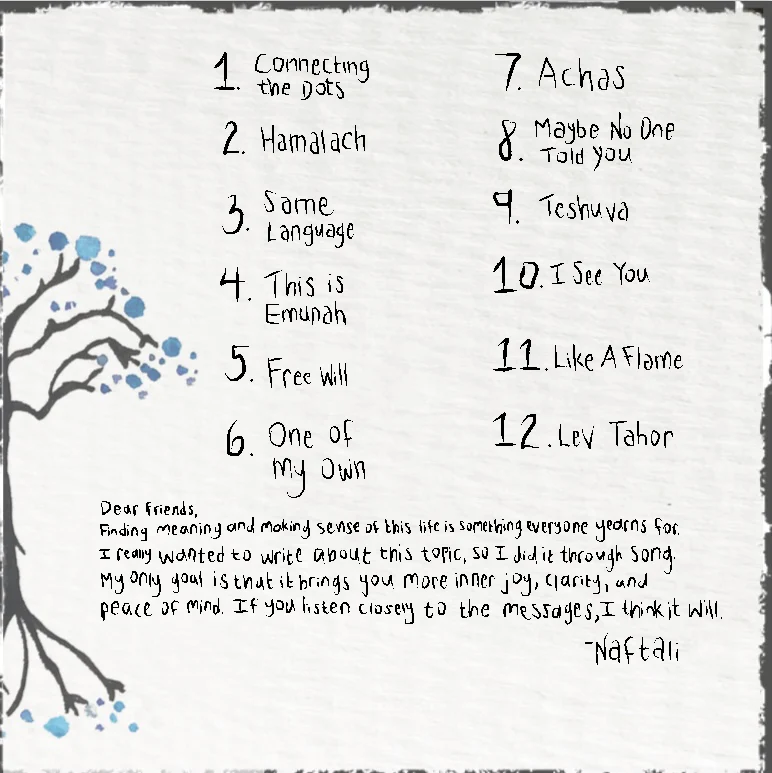 1. Connecting
the Dots
2. Hamalach
3. Same
Language
4. This is
Emunah
5. Free Will
6. One of
My Own
7. Achas
8. Maybe No One
Told You
9. Teshuva
10. I See You
11. Like A Flame
12. Lev Tahor
Dear Friends,
Finding meaning and making sense of this life is something everyone yearns for.
I really wanted to write about this topic, so I did it through song.
My only goal is that it brings you more inner joy, clarity, and
peace of mind. If you listen closely to the messages, I think it will.
-Naftali